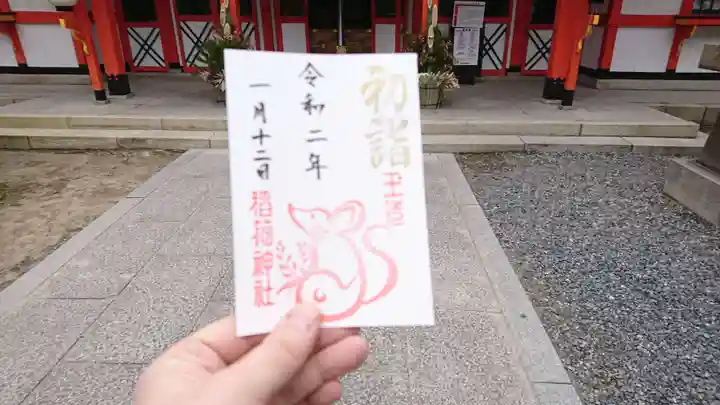 初詣
玉造
稲荷神社
令和二年
一月十二日